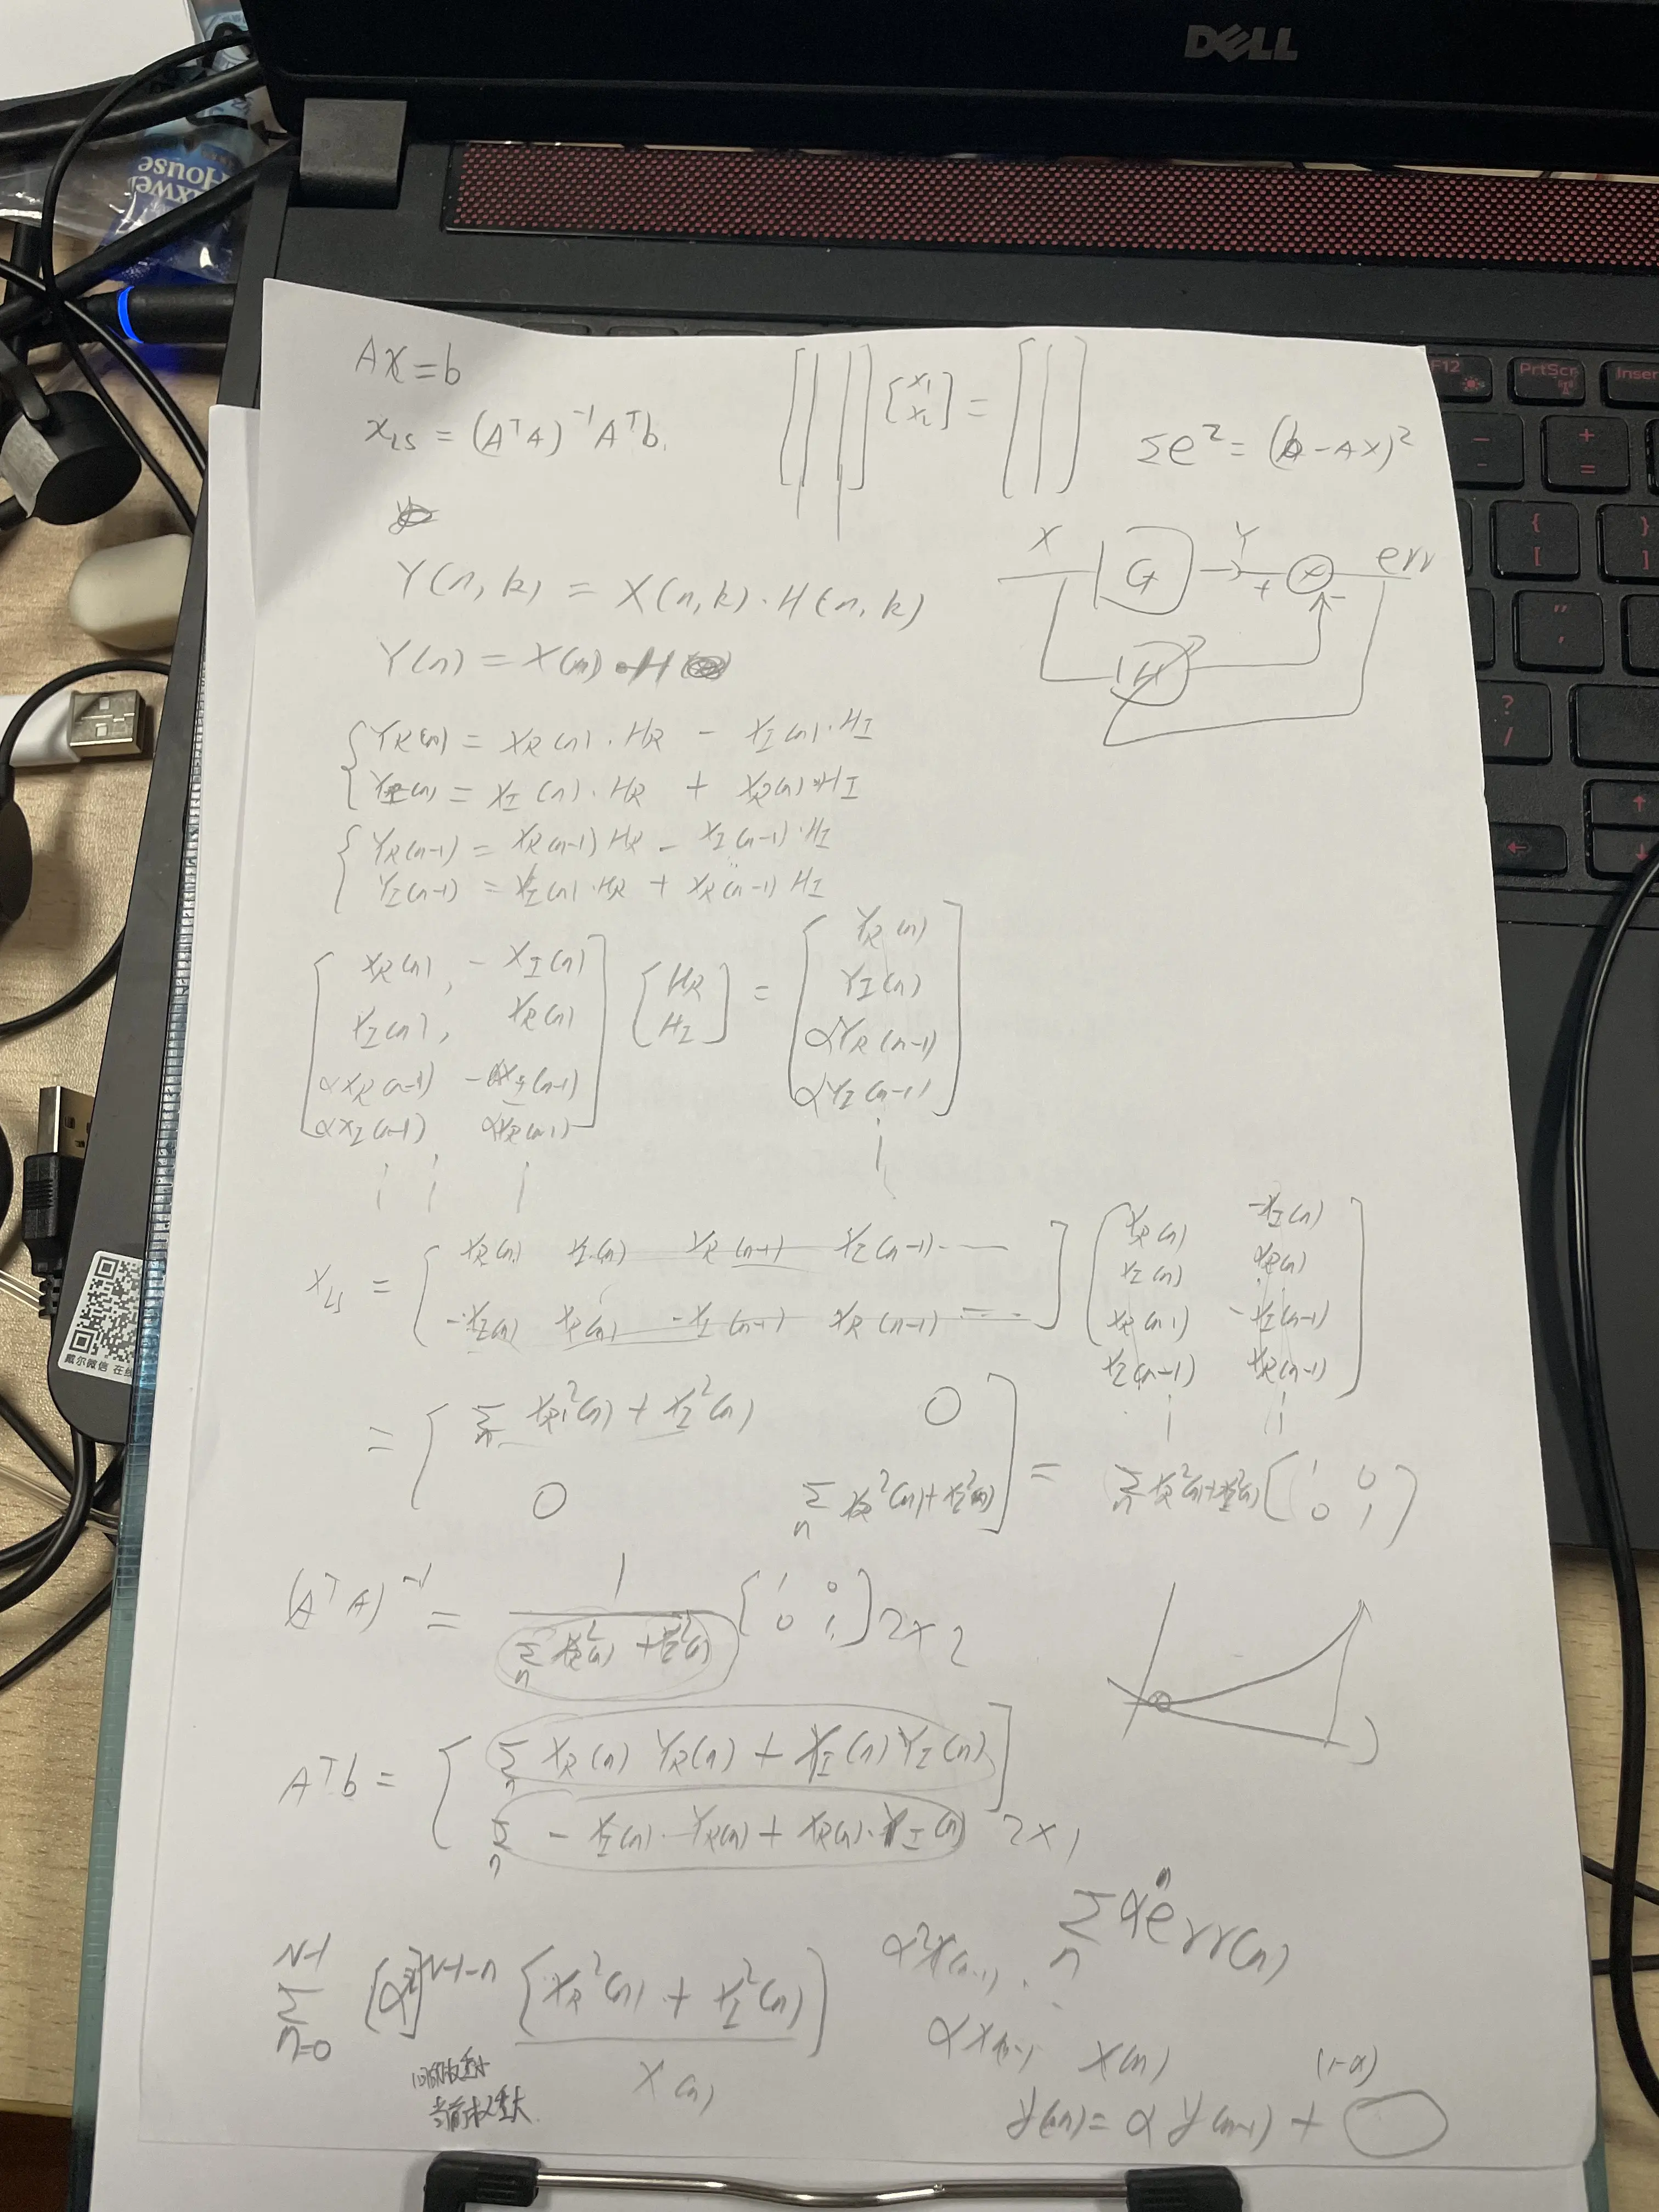 DELL
House
F12
PrtScr
Inser
戴尔微信 在线
Ax = b
x_LS = (AᵀA)⁻¹Aᵀb.
[ | | ] [x₁ x₂] = [ | ]
Σe² = (b - Ax)²
X G Y + - err
H
Y(n,k) = X(n,k)·H(n,k)
Y(n) = X(n)·H
{ Y_R(n) = X_R(n)·H_R - X_I(n)·H_I
Y_I(n) = X_I(n)·H_R + X_R(n)·H_I
{ Y_R(n-1) = X_R(n-1) H_R - X_I(n-1)·H_I
Y_I(n-1) = X_I(n)·H_R + X_R(n-1) H_I
[ X_R(n), - X_I(n) ] [ H_R ] = [ Y_R(n)
X_I(n), X_R(n) H_I Y_I(n)
αX_R(n-1) -αX_I(n-1) αY_R(n-1)
αX_I(n-1) αX_R(n-1) αY_I(n-1) ]
x_LS = [ X_R(n) X_I(n) X_R(n-1) X_I(n-1) ··· ] [ X_R(n) -X_I(n)
-X_I(n) X_R(n) -X_I(n-1) X_R(n-1) ··· X_I(n) X_R(n)
X_R(n-1) -X_I(n-1)
X_I(n-1) X_R(n-1) ]
= [ Σ_n X_R²(n) + X_I²(n) 0
0 Σ_n X_R²(n) + X_I²(n) ] = Σ_n X_R²(n)+X_I²(n) [ 1 0 0 1 ]
(AᵀA)⁻¹ = 1 / Σ_n X_R²(n) + X_I²(n) [ 1 0 0 1 ] 2×2
Aᵀb = [ Σ_n X_R(n) Y_R(n) + X_I(n) Y_I(n)
Σ_n - X_I(n)·Y_R(n) + X_R(n)·Y_I(n) ] 2×1
Σ_n αⁿ err(n)
Σ_{n=0}^{N-1} [α²]^{N-1-n} [X_R²(n) + X_I²(n)]
α²X(n-1)
αX(n-1) X(n)
X(n)
当前权重大
(1-α)
y(n) = α y(n-1) +